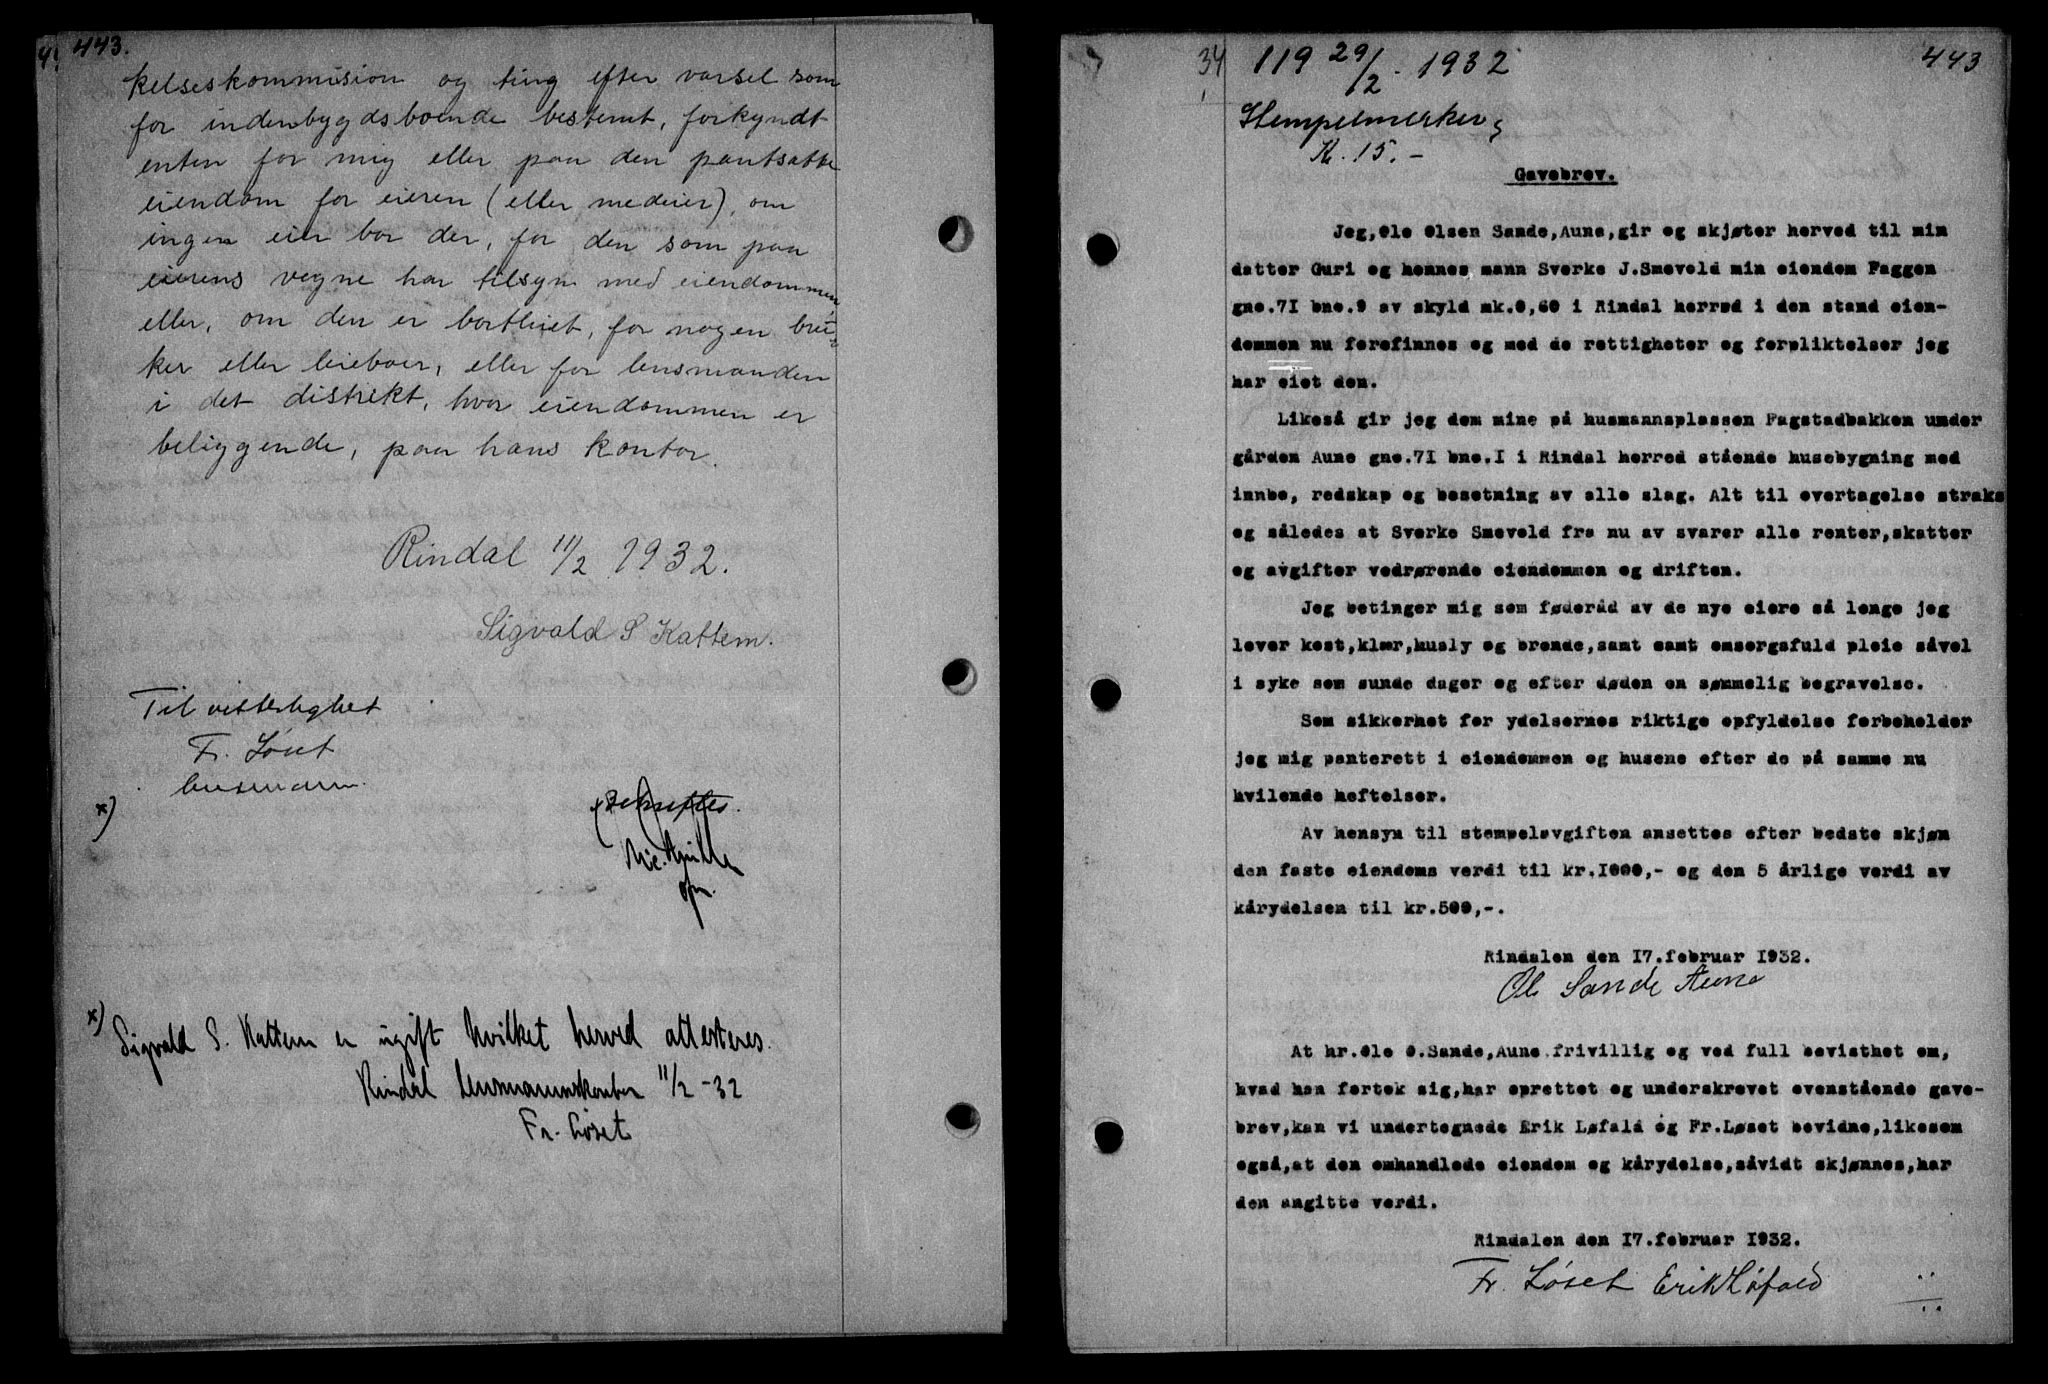 443.
kelseskommision og ting efter varsel som
for indenbygdsboende bestemt, forkyndt
enten for mig eller paa den pantsatte
eiendom for eieren (eller medeier), om
ingen eier bor der, for den som paa
eierens vegne har tilsyn med eiendommen,
eller, om den er bortleiet, for nogen bru-
ker eller leieboer, eller for lensmanden
i det distrikt, hvor eiendommen er
beliggende, paa hans kontor.
Rindal 11/2 1932.
Sigvald S Kattem.
Til vitterlighet
Fr. Løset
lensmann.
x)
x)
Sigvald S. Kattem er ugift hvilket herved attesteres.
Rindal lensmannskontor 11/2 -32
Fr. Løset
34 119 29/2. 1932 443
Stempelmerker
Kr. 15.-
Gavebrev.
Jeg, Ole Olsen Sande, Aune, gir og skjøter herved til min
datter Guri og hennes mann Sverke J. Smevold min eiendom Faggen
gno.71 bno.9 av skyld mk.0,60 i Rindal herred i den stand eien-
dommen nu forefinnes og med de rettigheter og forpliktelser jeg
har eiet den.
Likeså gir jeg dem mine på husmannsplassen Fagstadbakken under
gården Aune gno.71 bno.I i Rindal herred stående husebygning med
innbo, redskap og besetning av alle slag. Alt til overtagelse straks
og således at Sverke Smevold fra nu av svarer alle renter, skatter
og avgifter vedrørende eiendommen og driften.
Jeg betinger mig som føderåd av de nye eiere så lenge jeg
lever kost, klær, husly og brende, samt samt omsorgsfuld pleie såvel
i syke som sunde dager og efter døden en sømmelig begravelse.
Som sikkerhet for ydelsernes riktige opfyldelse forbeholder
jeg mig panterett i eiendommen og husene efter de på samme nu
hvilende heftelser.
Av hensyn til stempelavgiften ansettes efter bedste skjøn
den faste eiendoms verdi til kr.1000,- og den 5 årlige verdi av
kårydelsen til kr.500,-.
Rindalen den 17. februar 1932.
Ole Sande Aune
At hr. Ole O. Sande, Aune frivillig og ved full bevisthet om,
hvad han foretok sig, har oprettet og underskrevet ovenstående gave-
brev, kan vi undertegnede Erik Løfald og Fr. Løset bevidne, likesom
også, at den omhandlede eiendom og kårydelse, såvidt skjønnes, har
den angitte verdi.
Rindalen den 17. februar 1932.
Fr. Løset Erik Løfald